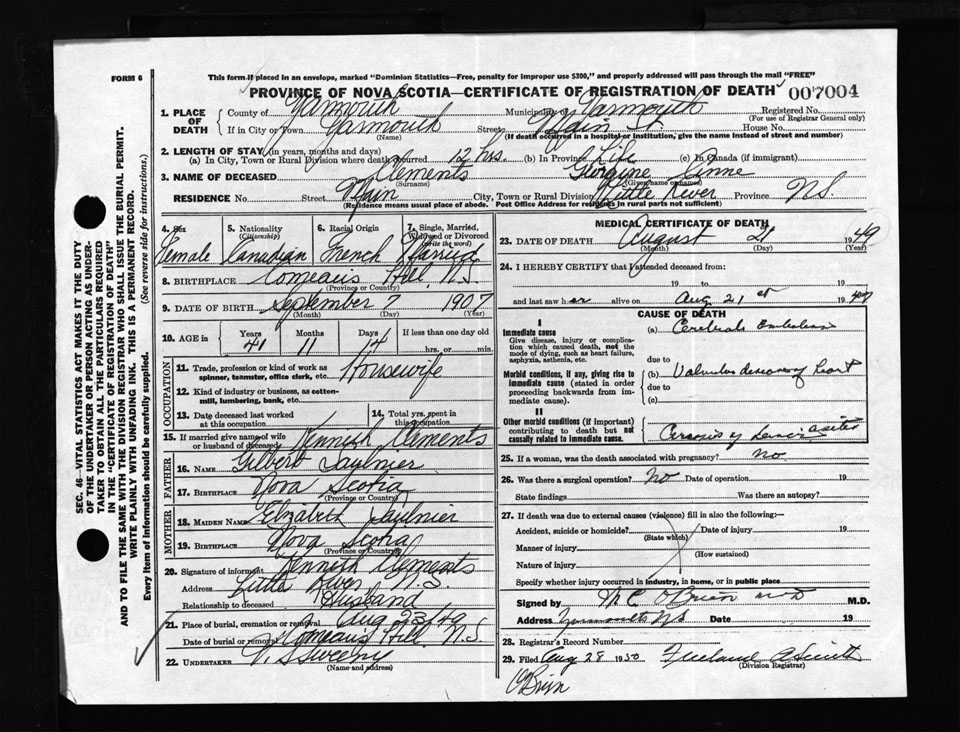 FORM 6
This form if placed in an envelope, marked "Dominion Statistics—Free, penalty for improper use $300," and properly addressed will pass through the mail "FREE"
PROVINCE OF NOVA SCOTIA—CERTIFICATE OF REGISTRATION OF DEATH 007004
1. PLACE OF DEATH
County of Yarmouth Municipality of Yarmouth Registered No.
(For use of Registrar General only)
If in City or Town Yarmouth Street Main St. House No.
(Name) (If death occurred in a hospital or institution, give the name instead of street and number)
2. LENGTH OF STAY (in years, months and days)
(a) In City, Town or Rural Division where death occurred 12 hrs. (b) In Province Life (c) In Canada (if immigrant)
3. NAME OF DECEASED Clements Georgine Anne
(Surname) (Given name or names)
RESIDENCE No. Street Main City, Town or Rural Division Little River Province N.S.
(Residence means usual place of abode. Post Office Address for residents in rural parts not sufficient)
4. Sex 5. Nationality (Citizenship) 6. Racial Origin 7. Single, Married, Widowed or Divorced (write the word)
Female Canadian French Married
8. BIRTHPLACE Comeau's Hill, N.S.
(Province or Country)
9. DATE OF BIRTH September 7 1907
(Month) (Day) (Year)
10. AGE in Years Months Days If less than one day old
41 11 14 hrs. or min.
OCCUPATION
11. Trade, profession or kind of work as spinner, teamster, office clerk, etc. Housewife
12. Kind of industry or business, as cotton-mill, lumbering, bank, etc.
13. Date deceased last worked at this occupation
14. Total yrs. spent in this occupation
15. If married give name of wife or husband of deceased Kenneth Clements
FATHER
16. NAME Gilbert Saulnier
17. BIRTHPLACE Nova Scotia
(Province or Country)
MOTHER
18. MAIDEN NAME Elizabeth Saulnier
19. BIRTHPLACE Nova Scotia
(Province or Country)
20. Signature of informant Kenneth Clements
Address Little River N.S.
Relationship to deceased Husband
21. Place of burial, cremation or removal Aug 23/49
Date of burial or removal Comeau's Hill, N.S.
22. UNDERTAKER V. S. Sweeny
(Name and address)
MEDICAL CERTIFICATE OF DEATH
23. DATE OF DEATH August 21 1949
(Month) (Day) (Year)
24. I HEREBY CERTIFY that I attended deceased from:
19 to 19
and last saw her alive on Aug 21st 1949
CAUSE OF DEATH
I
Immediate cause
Give disease, injury or complication which caused death, not the mode of dying, such as heart failure, asphyxia, asthenia, etc.
(a) Cerebral Embolism
due to
Morbid conditions, if any, giving rise to immediate cause (stated in order proceeding backwards from immediate cause).
(b) Valvular disease of heart
due to
(c)
II
Other morbid conditions (if important) contributing to death but not causally related to immediate cause.
25. If a woman, was the death associated with pregnancy? No
26. Was there a surgical operation? No Date of operation 19
State findings Was there an autopsy?
27. If death was due to external causes (violence) fill in also the following:—
Accident, suicide or homicide? Date of injury 19
(State which)
Manner of injury
(How sustained)
Nature of injury
Specify whether injury occurred in industry, in home, or in public place
Signed by M C O'Brien MD M.D.
Address Yarmouth NS Date 19
28. Registrar's Record Number
29. Filed Aug 28 1950 Freeland A Smith
(Division Registrar)
O'Brien
SEC. 46—VITAL STATISTICS ACT MAKES IT THE DUTY
OF THE UNDERTAKER OR PERSON ACTING AS UNDER-
TAKER TO OBTAIN ALL THE PARTICULARS REQUIRED
IN THE "CERTIFICATE OF REGISTRATION OF DEATH"
AND TO FILE THE SAME WITH THE DIVISION REGISTRAR WHO SHALL ISSUE THE BURIAL PERMIT.
WRITE PLAINLY WITH UNFADING INK. THIS IS A PERMANENT RECORD.
Every item of Information should be carefully supplied. (See reverse side for instructions.)